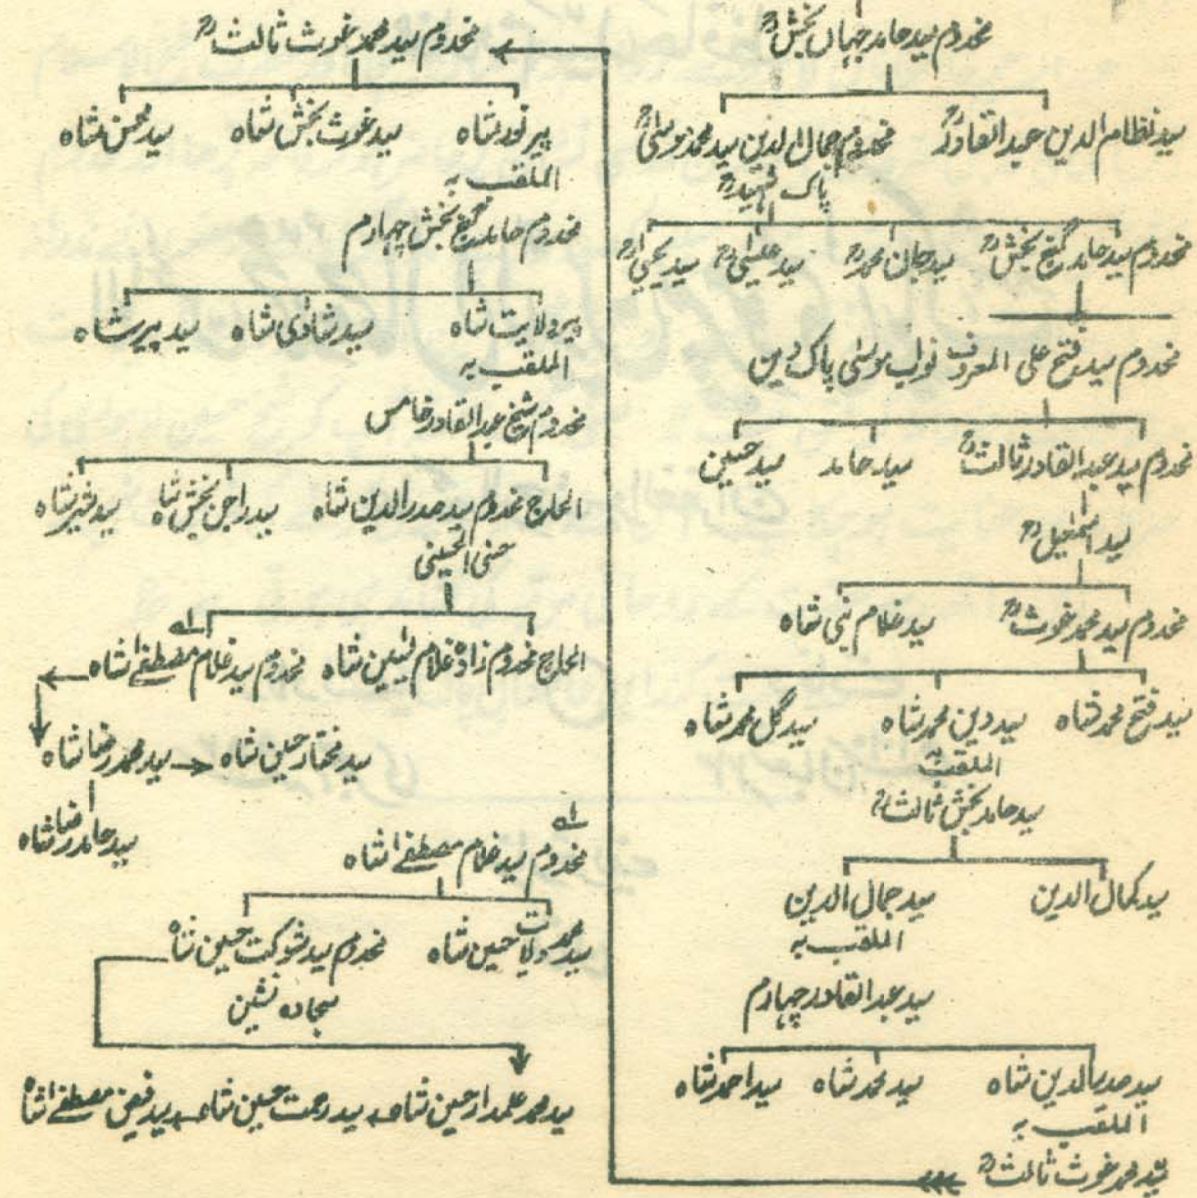 مخدوم سید حامد جہاں بخشؒ
سید نظام الدین عبدالقادرؒ مخدوم جمال الدین سید محمد موسیٰؒ
پاک شہیدؒ
مخدوم سید حامد گنج بخشؒ سید جان محمدؒ سید عیسیٰؒ سید یحییٰؒ
مخدوم سید فتح علی المعروف نواب موسیٰ پاک دین
مخدوم سید عبدالقادر ثالثؒ سید حامد سید حسین
سید اسمٰعیلؒ
مخدوم سید محمد غوثؒ سید غلام نبی شاہ
سید فتح محمد شاہ سید دین محمد شاہ سید گل محمد شاہ
الملقب بہ
سید حامد بخش ثالثؒ
سید کمال الدین سید جمال الدین
الملقب بہ
سید عبدالقادر چہارم
سید صدرالدین شاہ سید محمد شاہ سید احمد شاہ
الملقب بہ
سید محمد غوث ثالثؒ
مخدوم سید محمد غوث ثالثؒ
پیر نور شاہ سید غوث بخش شاہ سید محسن شاہ
الملقب بہ
مخدوم حامد گنج بخش چہارم
پیر ولایت شاہ سید شادی شاہ سید پیر شاہ
الملقب بہ
مخدوم شیخ عبدالقادر خامس
الحاج مخدوم سید صدرالدین شاہ سید راجن بخش شاہ سید شیر شاہ
حسنی الحسینی
الحاج مخدوم زادہ غلام یٰسین شاہ مخدوم سید غلام مصطفےٰ شاہ لہ
سید مختار حسین شاہ سید محمد رضا شاہ
سید حامد رضا شاہ
لہ
مخدوم سید غلام مصطفےٰ شاہ
سید محمد ولایت حسین شاہ مخدوم سید شوکت حسین شاہ
سجادہ نشین
سید محمد علمدار حسین شاہ سید رحمت حسین شاہ سید فیض مصطفےٰ شاہ